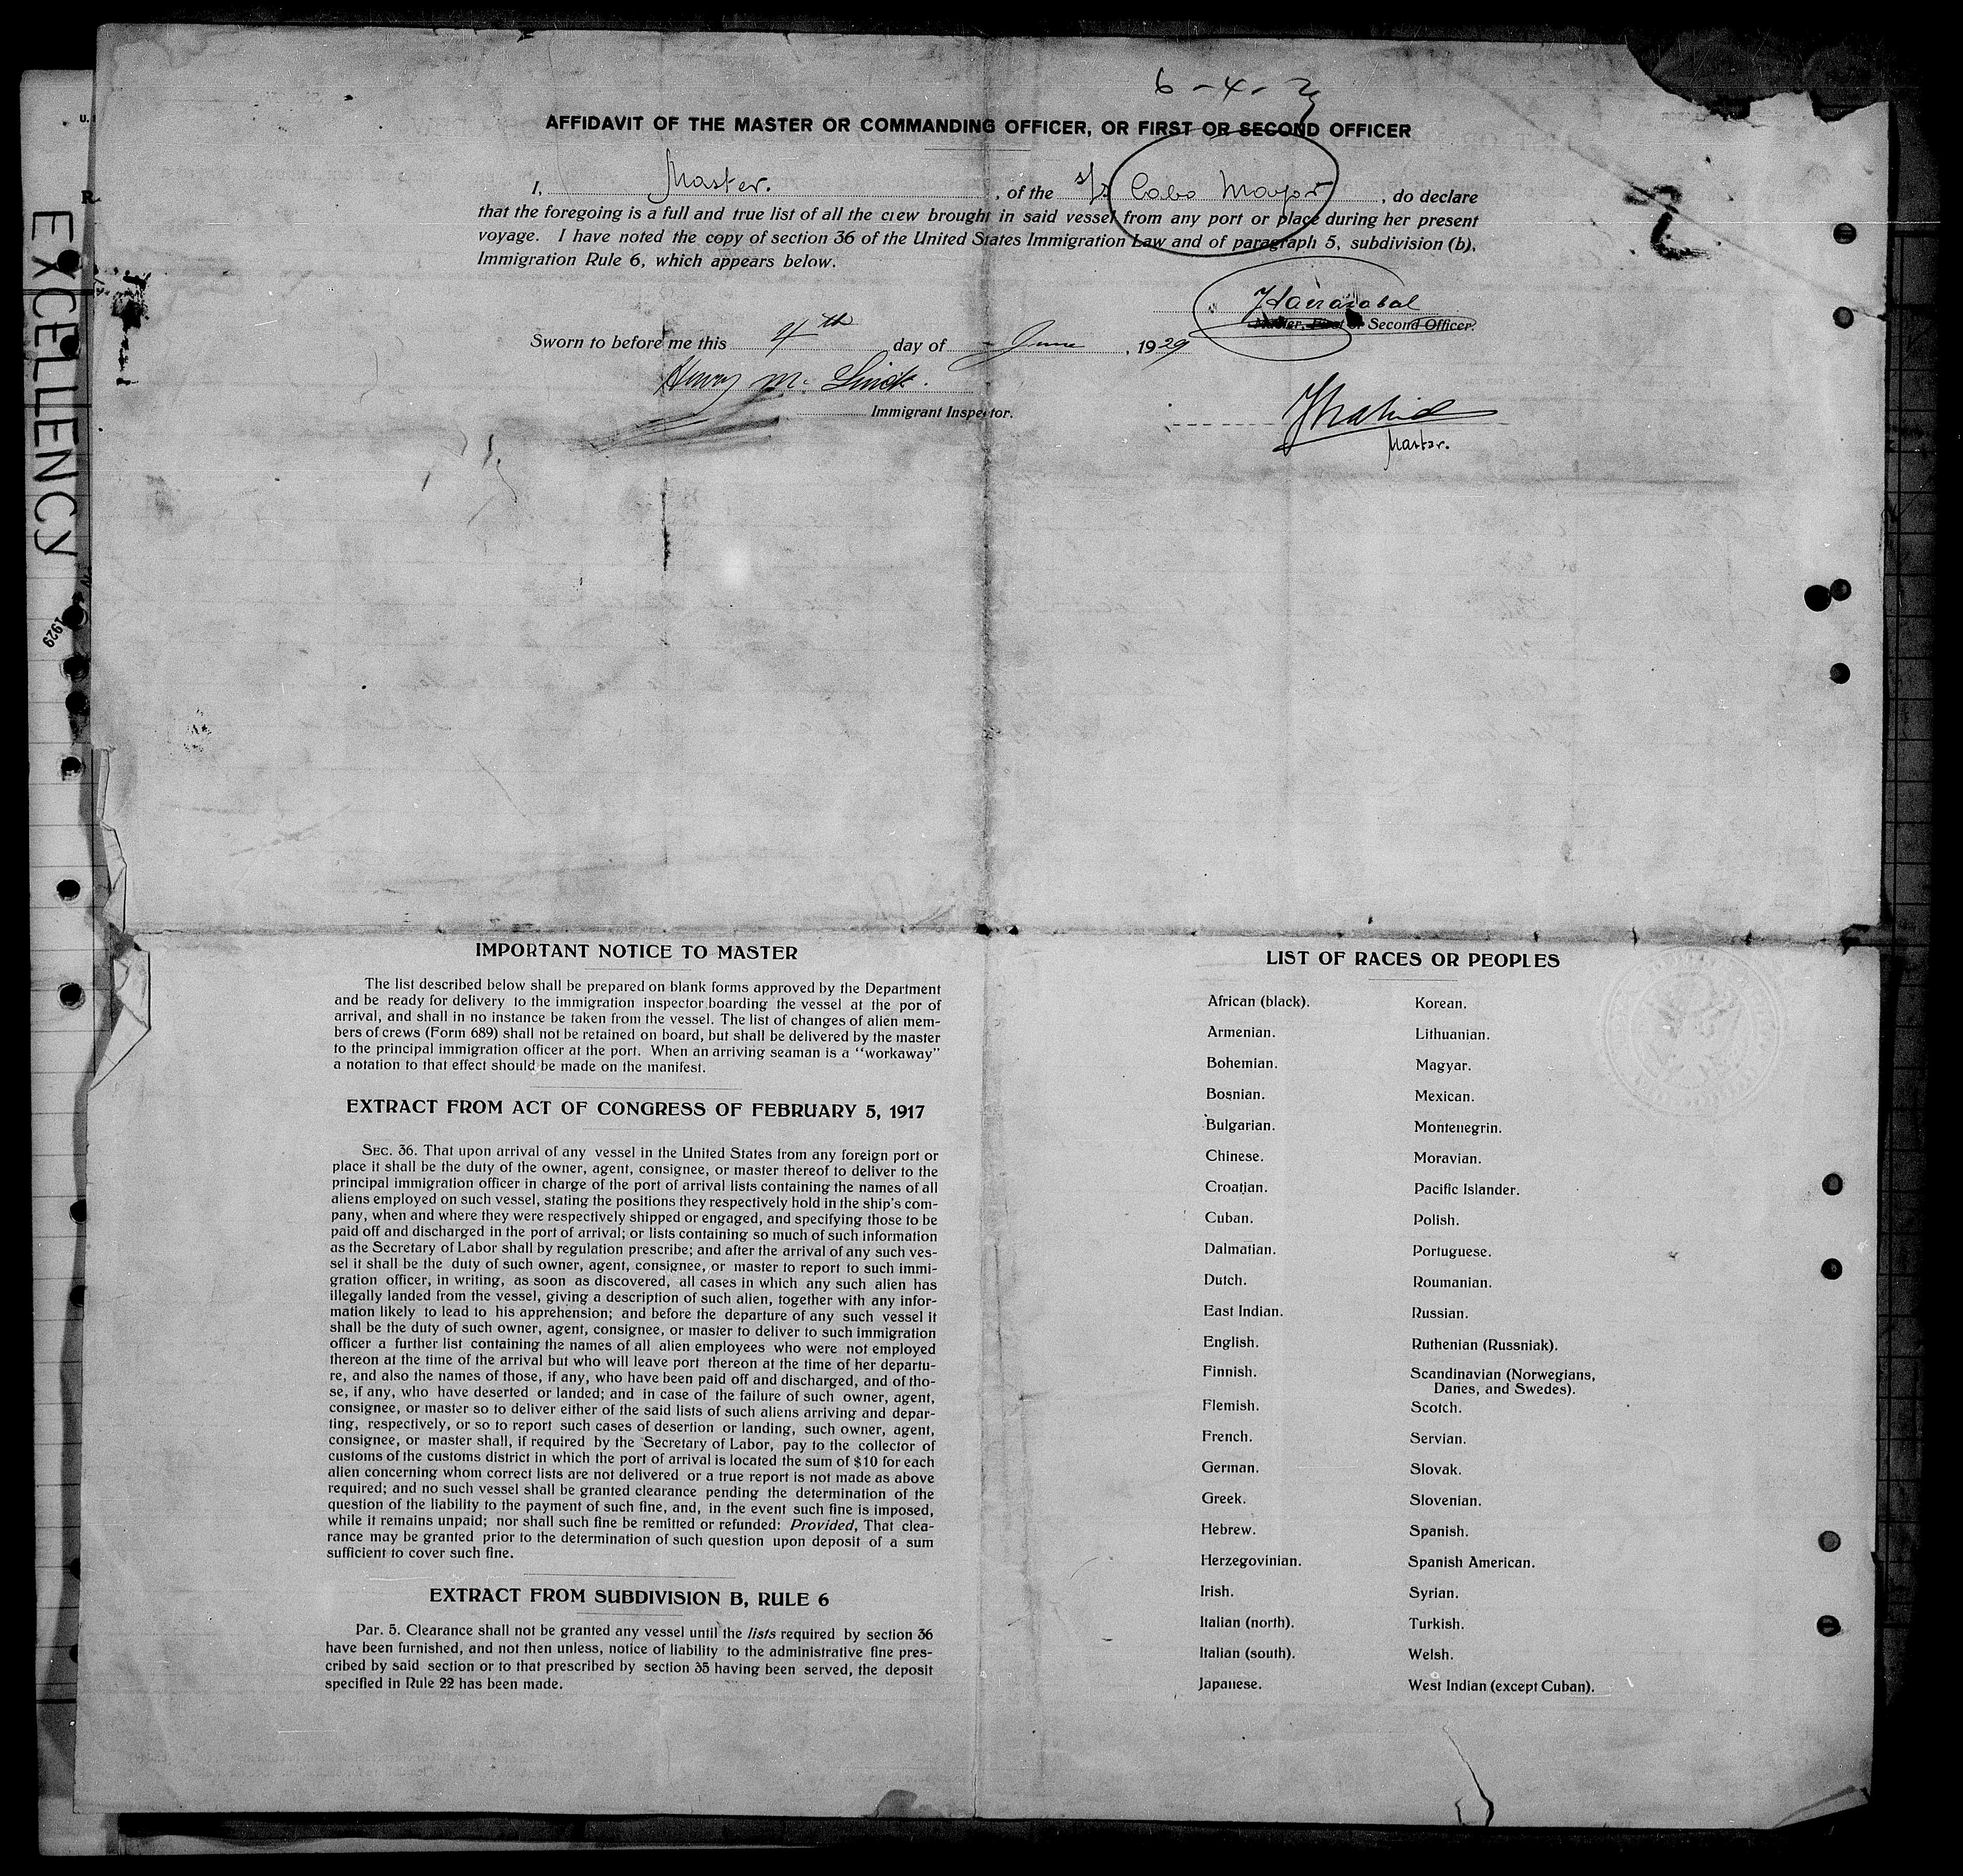 6-4-29
AFFIDAVIT OF THE MASTER OR COMMANDING OFFICER, OR FIRST OR SECOND OFFICER
I, Master. , of the s/s Cabo Mayor , do declare
that the foregoing is a full and true list of all the crew brought in said vessel from any port or place during her present
voyage. I have noted the copy of section 36 of the United States Immigration Law and of paragraph 5, subdivision (b),
Immigration Rule 6, which appears below.
Master, First or Second Officer.
Sworn to before me this 4th day of June , 1929
Henry M.
Immigrant Inspector.
Master.
EXCELLENCY
1929
IMPORTANT NOTICE TO MASTER
The list described below shall be prepared on blank forms approved by the Department
and be ready for delivery to the immigration inspector boarding the vessel at the por of
arrival, and shall in no instance be taken from the vessel. The list of changes of alien mem-
bers of crews (Form 689) shall not be retained on board, but shall be delivered by the master
to the principal immigration officer at the port. When an arriving seaman is a "workaway"
a notation to that effect should be made on the manifest.
EXTRACT FROM ACT OF CONGRESS OF FEBRUARY 5, 1917
SEC. 36. That upon arrival of any vessel in the United States from any foreign port or
place it shall be the duty of the owner, agent, consignee, or master thereof to deliver to the
principal immigration officer in charge of the port of arrival lists containing the names of all
aliens employed on such vessel, stating the positions they respectively hold in the ship's com-
pany, when and where they were respectively shipped or engaged, and specifying those to be
paid off and discharged in the port of arrival; or lists containing so much of such information
as the Secretary of Labor shall by regulation prescribe; and after the arrival of any such ves-
sel it shall be the duty of such owner, agent, consignee, or master to report to such immi-
gration officer, in writing, as soon as discovered, all cases in which any such alien has
illegally landed from the vessel, giving a description of such alien, together with any infor-
mation likely to lead to his apprehension; and before the departure of any such vessel it
shall be the duty of such owner, agent, consignee, or master to deliver to such immigration
officer a further list containing the names of all alien employees who were not employed
thereon at the time of the arrival but who will leave port thereon at the time of her departu-
re, and also the names of those, if any, who have been paid off and discharged, and of tho-
se, if any, who have deserted or landed; and in case of the failure of such owner, agent,
consignee, or master so to deliver either of the said lists of such aliens arriving and depar-
ting, respectively, or so to report such cases of desertion or landing, such owner, agent,
consignee, or master shall, if required by the Secretary of Labor, pay to the collector of
customs of the customs district in which the port of arrival is located the sum of $10 for each
alien concerning whom correct lists are not delivered or a true report is not made as above
required; and no such vessel shall be granted clearance pending the determination of the
question of the liability to the payment of such fine, and, in the event such fine is imposed,
while it remains unpaid; nor shall such fine be remitted or refunded: Provided, That clea-
rance may be granted prior to the determination of such question upon deposit of a sum
sufficient to cover such fine.
EXTRACT FROM SUBDIVISION B, RULE 6
Par. 5. Clearance shall not be granted any vessel until the lists required by section 36
have been furnished, and not then unless, notice of liability to the administrative fine pres-
cribed by said section or to that prescribed by section 35 having been served, the deposit
specified in Rule 22 has been made.
LIST OF RACES OR PEOPLES
African (black).
Armenian.
Bohemian.
Bosnian.
Bulgarian.
Chinese.
Croatian.
Cuban.
Dalmatian.
Dutch.
East Indian.
English.
Finnish.
Flemish.
French.
German.
Greek.
Hebrew.
Herzegovinian.
Irish.
Italian (north).
Italian (south).
Japanese.
Korean.
Lithuanian.
Magyar.
Mexican.
Montenegrin.
Moravian.
Pacific Islander.
Polish.
Portuguese.
Roumanian.
Russian.
Ruthenian (Russniak).
Scandinavian (Norwegians,
Danes, and Swedes).
Scotch.
Servian.
Slovak.
Slovenian.
Spanish.
Spanish American.
Syrian.
Turkish.
Welsh.
West Indian (except Cuban).